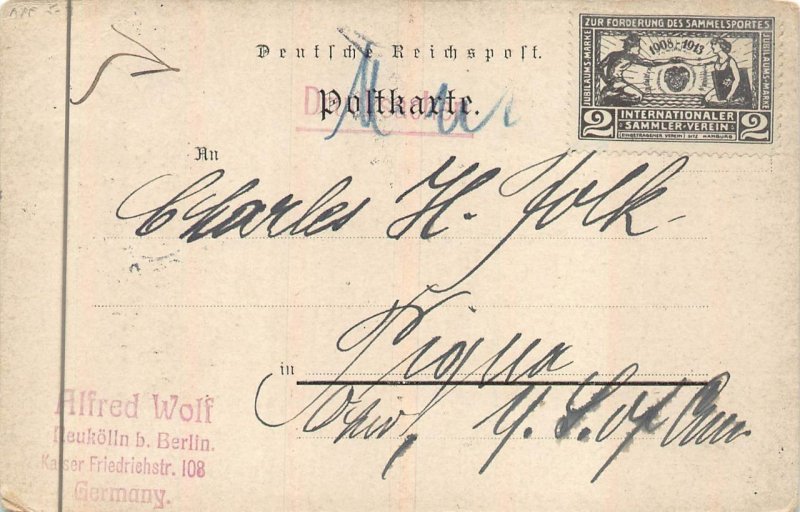 ZUR FÖRDERUNG DES SAMMELSPORTES
JUBILÄUMS-MARKE
1908-1913
JUBILÄUMS-MARKE
2 INTERNATIONALER 2
SAMMLER-VEREIN
(EINGETRAGENER VEREIN) SITZ HAMBURG
Deutsche Reichspost.
Postkarte.
An
Charles H. Folk
in Piqua
Ohio, U. S. of Am
Alfred Wolf
Neukölln b. Berlin.
Kaiser Friedrichstr. 108
Germany.